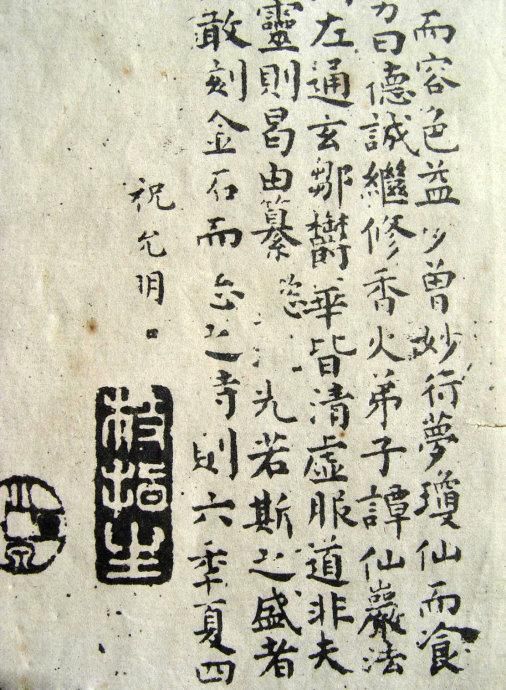 而容色益少曾妙行夢瓊仙而飡
曰德誠繼修香火弟子譚仙巖法
左通玄鄒鬱華皆清虛服道非夫
靈則曷由纂光若斯之盛者
敢刻金石而志之寺則六季夏四
祝允明
枝指生